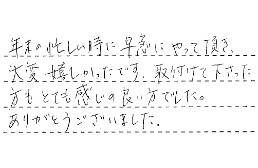 年末の忙しい時に早急にやって頂き、
大変嬉しかったです。取付けて下さった
方もとても感じの良い方でした。
ありがとうございました。